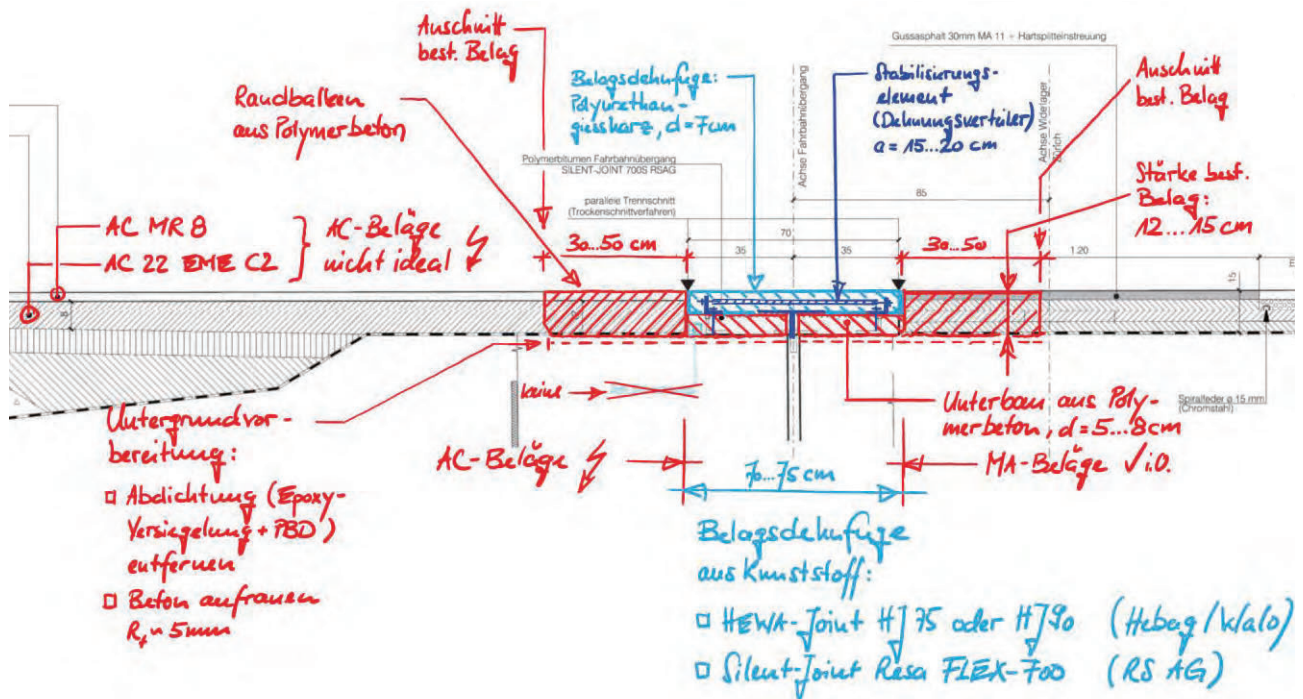 Anschnitt
best. Belag
Gussasphalt 30mm MA 11 + Hartsplitteinstreuung
Randbalken
aus Polymerbeton
Belagsdehnfuge:
Polyurethan-
giessharz, d=7cm
Achse Fahrbahnübergang
Stabilisierungs-
element
(Dehnungsverteiler)
a = 15...20 cm
Achse Widerlager
Zürich
Anschnitt
best. Belag
Polymerbitumen Fahrbahnübergang
SILENT-JOINT 700S RSAG
parallele Trennschnitt
(Trockenschnittverfahren)
85
Stärke best.
Belag:
12...15 cm
AC MR 8
AC 22 EME C2
AC-Beläge
nicht ideal
30...50 cm
70
35
35
30...50
1.20
15
8
keine
Spiralfeder ø 15 mm
(Chromstahl)
Untergrundvor-
bereitung:
□ Abdichtung (Epoxy-
Versiegelung + PBD)
entfernen
□ Beton aufrauen
Rt ~ 5mm
AC-Beläge
Unterbau aus Poly-
merbeton, d=5...8cm
MA-Beläge √ i.O.
70...75 cm
Belagsdehnfuge
aus Kunststoff:
□ HEWA-Joint HJ 75 oder HJ 90 (Hebag/kalo)
□ Silent-Joint Resa FLEX-700 (RS AG)